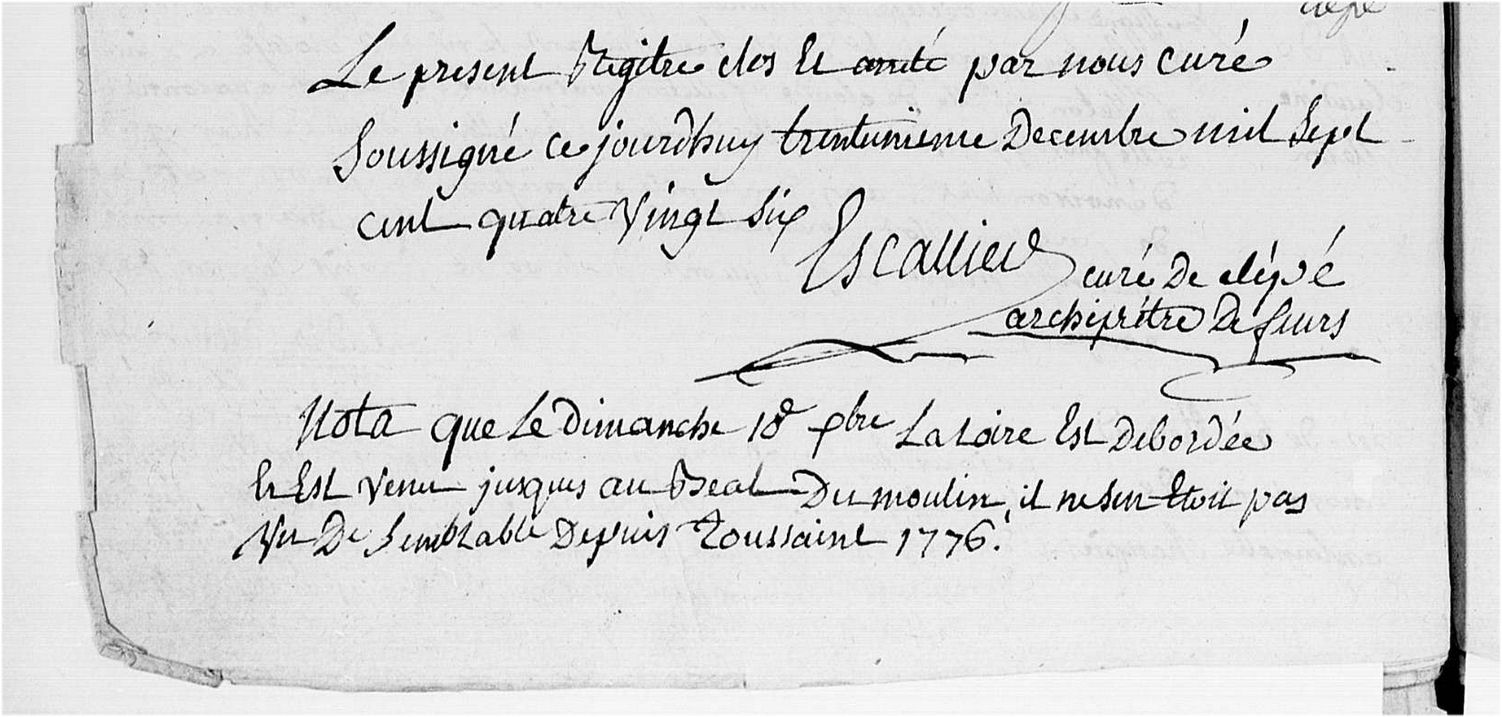 Le present Regitre clos Et areté par nous curé
Soussigné ce jourdhuy trentunieme Decembre mil Sept
cent quatre Vingt Six
Escallier curé De clépé
archiprétre De feurs
Nota que Le Dimanche 18e bre La Loire Est Debordée
Et Est Venu jusques au Beal Du moulin, il ne sen Etoit pas
Vu De Semblable Depuis Toussaint 1776.